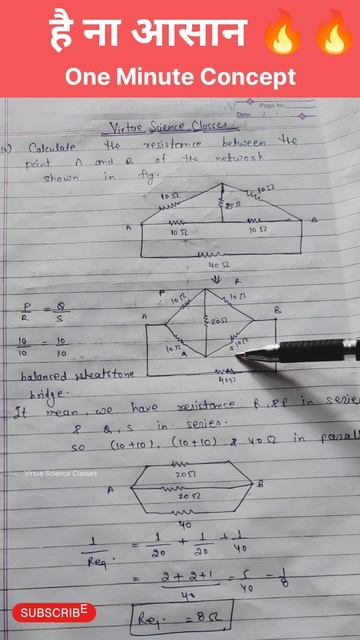 है ना आसान 🔥🔥
One Minute Concept
Page No.
Date / /
Virtue Science Classes
Calculate the resistance between the
point A and B of the network
shown in fig.
10Ω 10Ω
20Ω
A 10Ω 10Ω B
40Ω
P R
10Ω 10Ω
A 20Ω B
10Ω 10Ω
Q S
40Ω
P/R = Q/S
10/10 = 10/10
balanced wheatstone
bridge.
It mean we have resistance R, &P in series
& Q, S in series.
so (10+10), (10+10) & 40Ω in parall
Virtue Science Classes
20Ω
A 20Ω B
40
1/Req. = 1/20 + 1/20 + 1/40
= 2+2+1/40 = 5/40 = 1/8
Req. = 8Ω
SUBSCRIBE